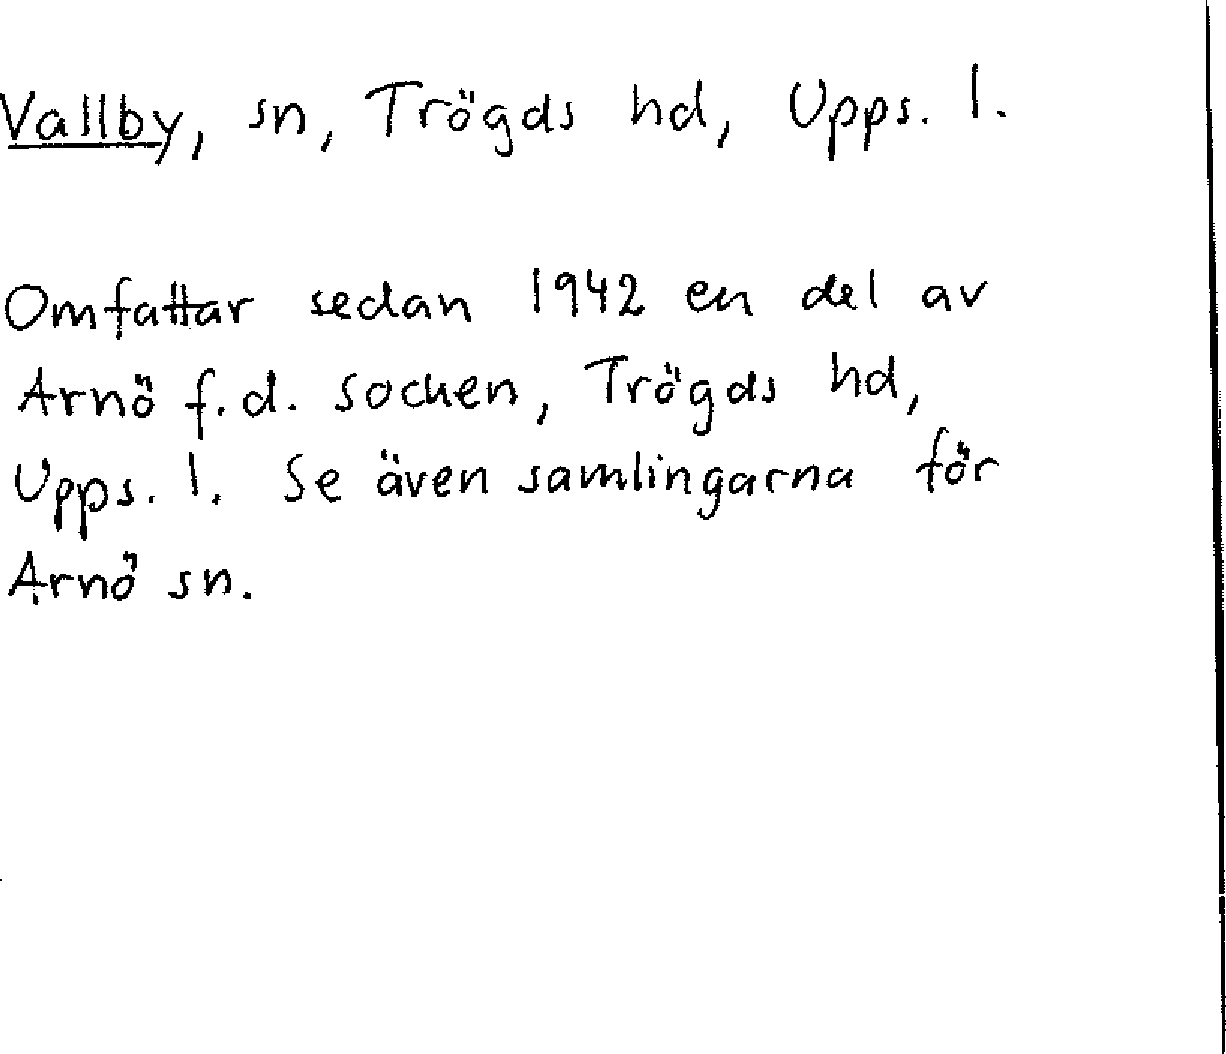 Vallby, sn, Trögds hd, Upps. l.
Omfattar sedan 1942 en del av
Arnö f.d. socken, Trögds hd,
Upps. l. Se även samlingarna för
Arnö sn.